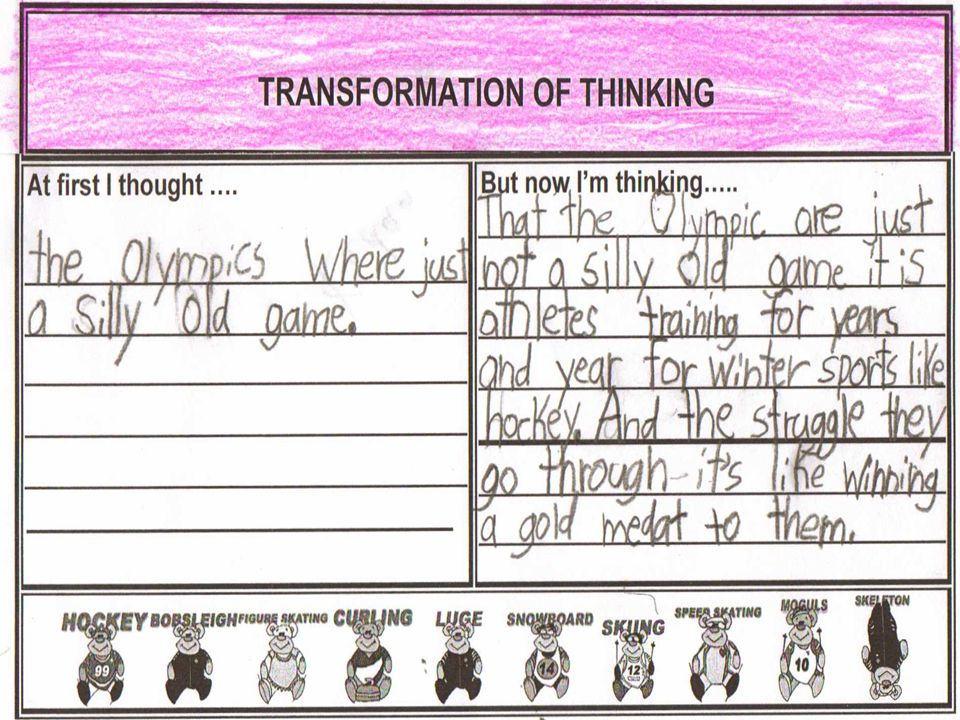 TRANSFORMATION OF THINKING
At first I thought ....
the Olympics Where just
a Silly Old game.
But now I'm thinking.....
That the Olympic are just
not a silly old game it is
athletes training for years
and year for winter sports like
hockey. And the struggle they
go through-it's like winning
a gold medat to them.
HOCKEY BOBSLEIGH FIGURE SKATING CURLING LUGE SNOWBOARD SKIING SPEED SKATING MOGULS SKELETON
99 14 12 10